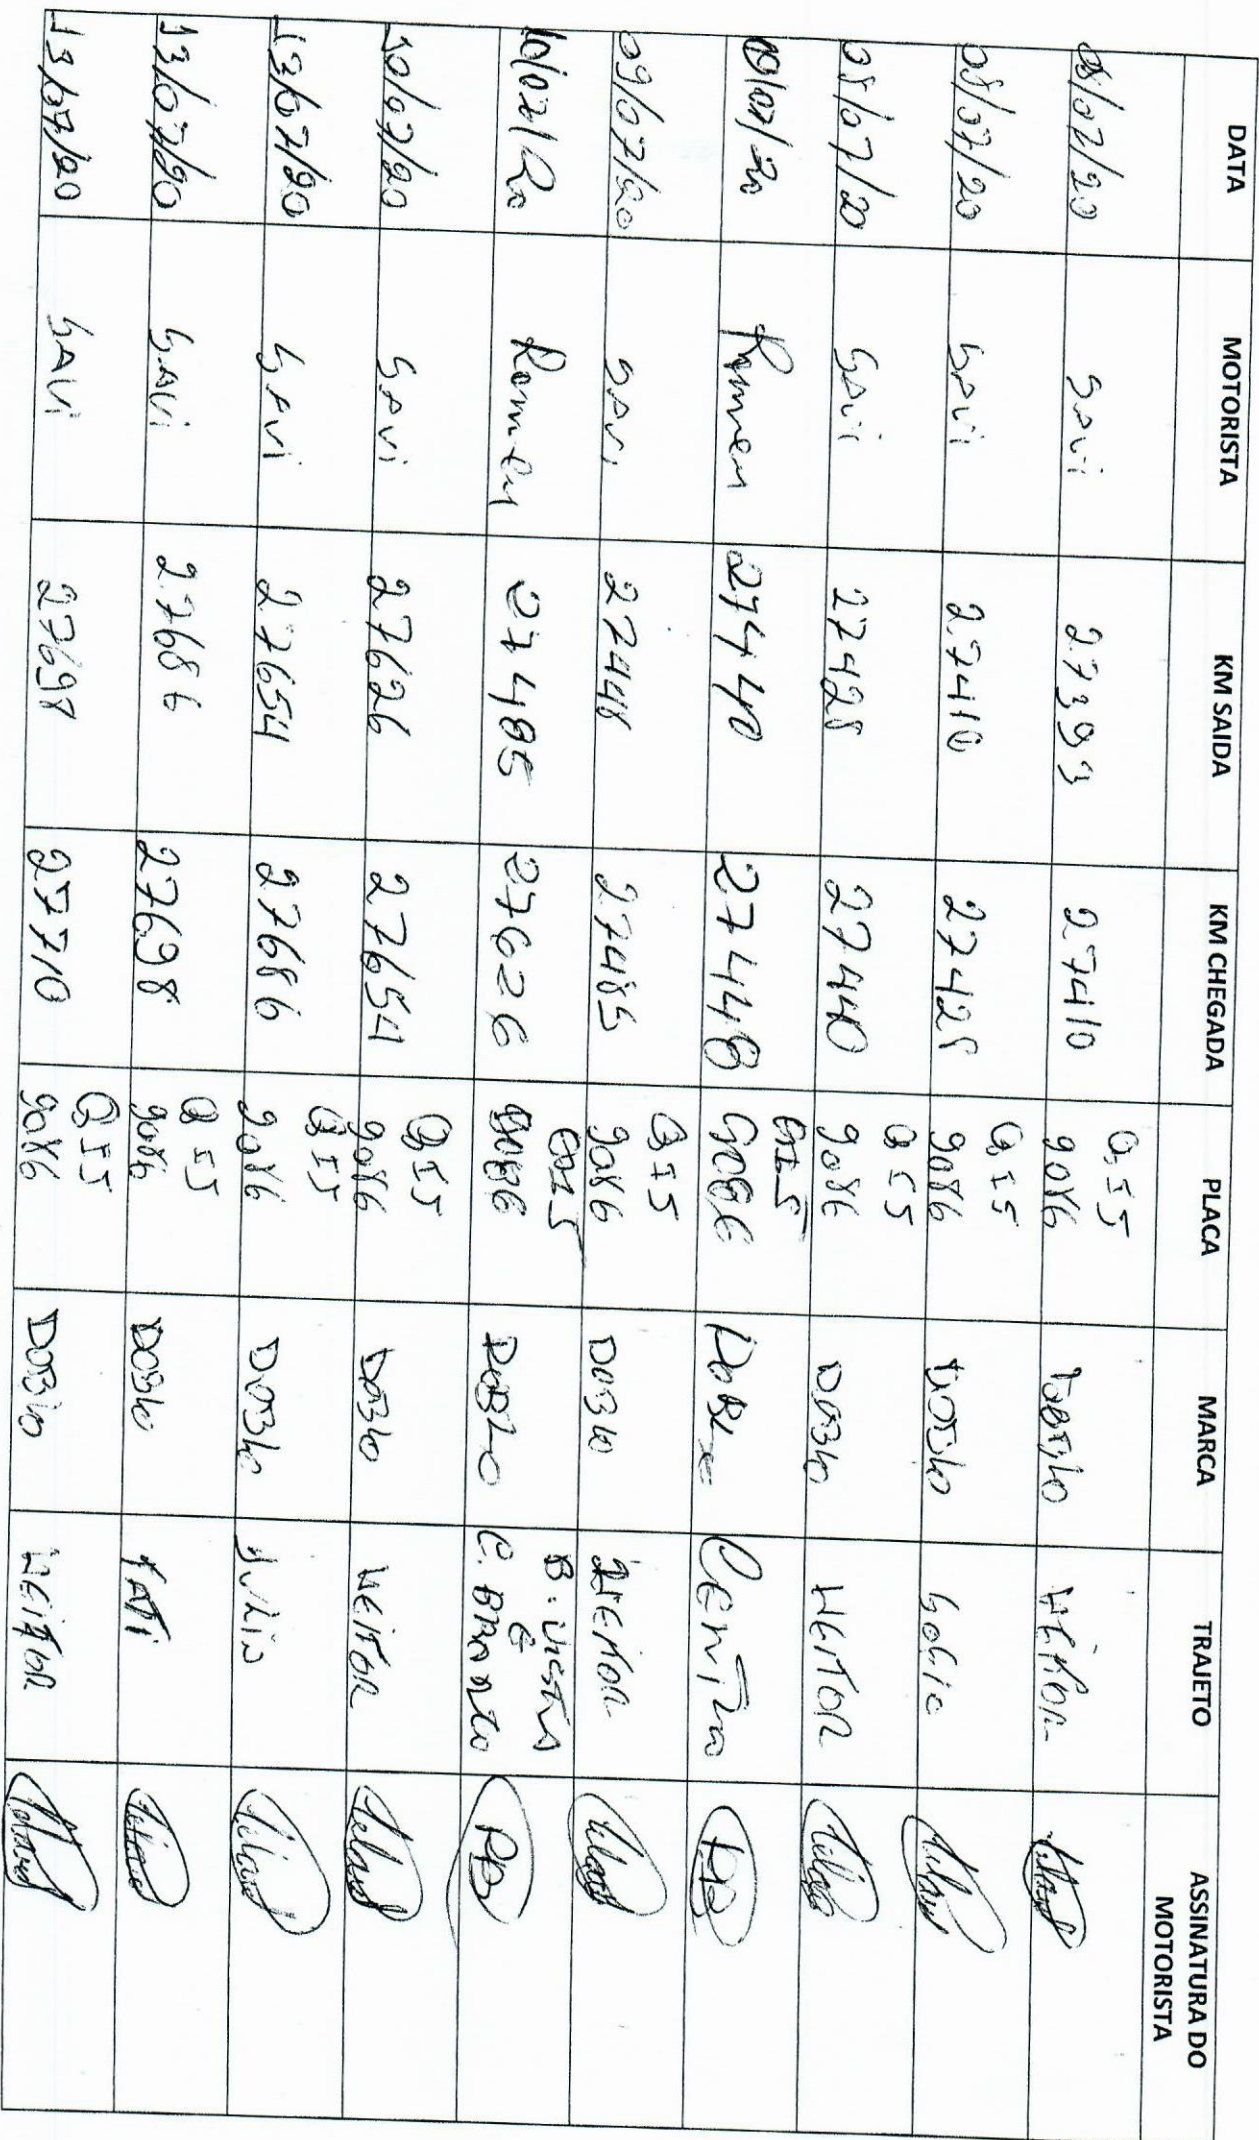 DATA MOTORISTA KM SAIDA KM CHEGADA PLACA MARCA TRAJETO ASSINATURA DO MOTORISTA
08/07/20 SAVI 27393 27410 QI5 9086 DOBLO HEITOR
08/07/20 SAVI 27410 27428 QI5 9086 DOBLO
08/07/20 SAVI 27428 27440 QI5 9086 DOBLO HEITOR
09/07/20 27440 27448 QI5 9086 DOBLO CENTRO
09/07/20 SAVI 27448 27485 QI5 9086 DOBLO HEITOR
10/07/20 27485 27626 QI5 9086 DOBLO B. VISTA E C. BRANCO
10/07/20 SAVI 27626 27654 QI5 9086 DOBLO HEITOR
13/07/20 SAVI 27654 27686 QI5 9086 DOBLO JULIO
13/07/20 SAVI 27686 27698 QI5 9086 DOBLO TATI
13/07/20 SAVI 27698 27710 QI5 9086 DOBLO HEITOR